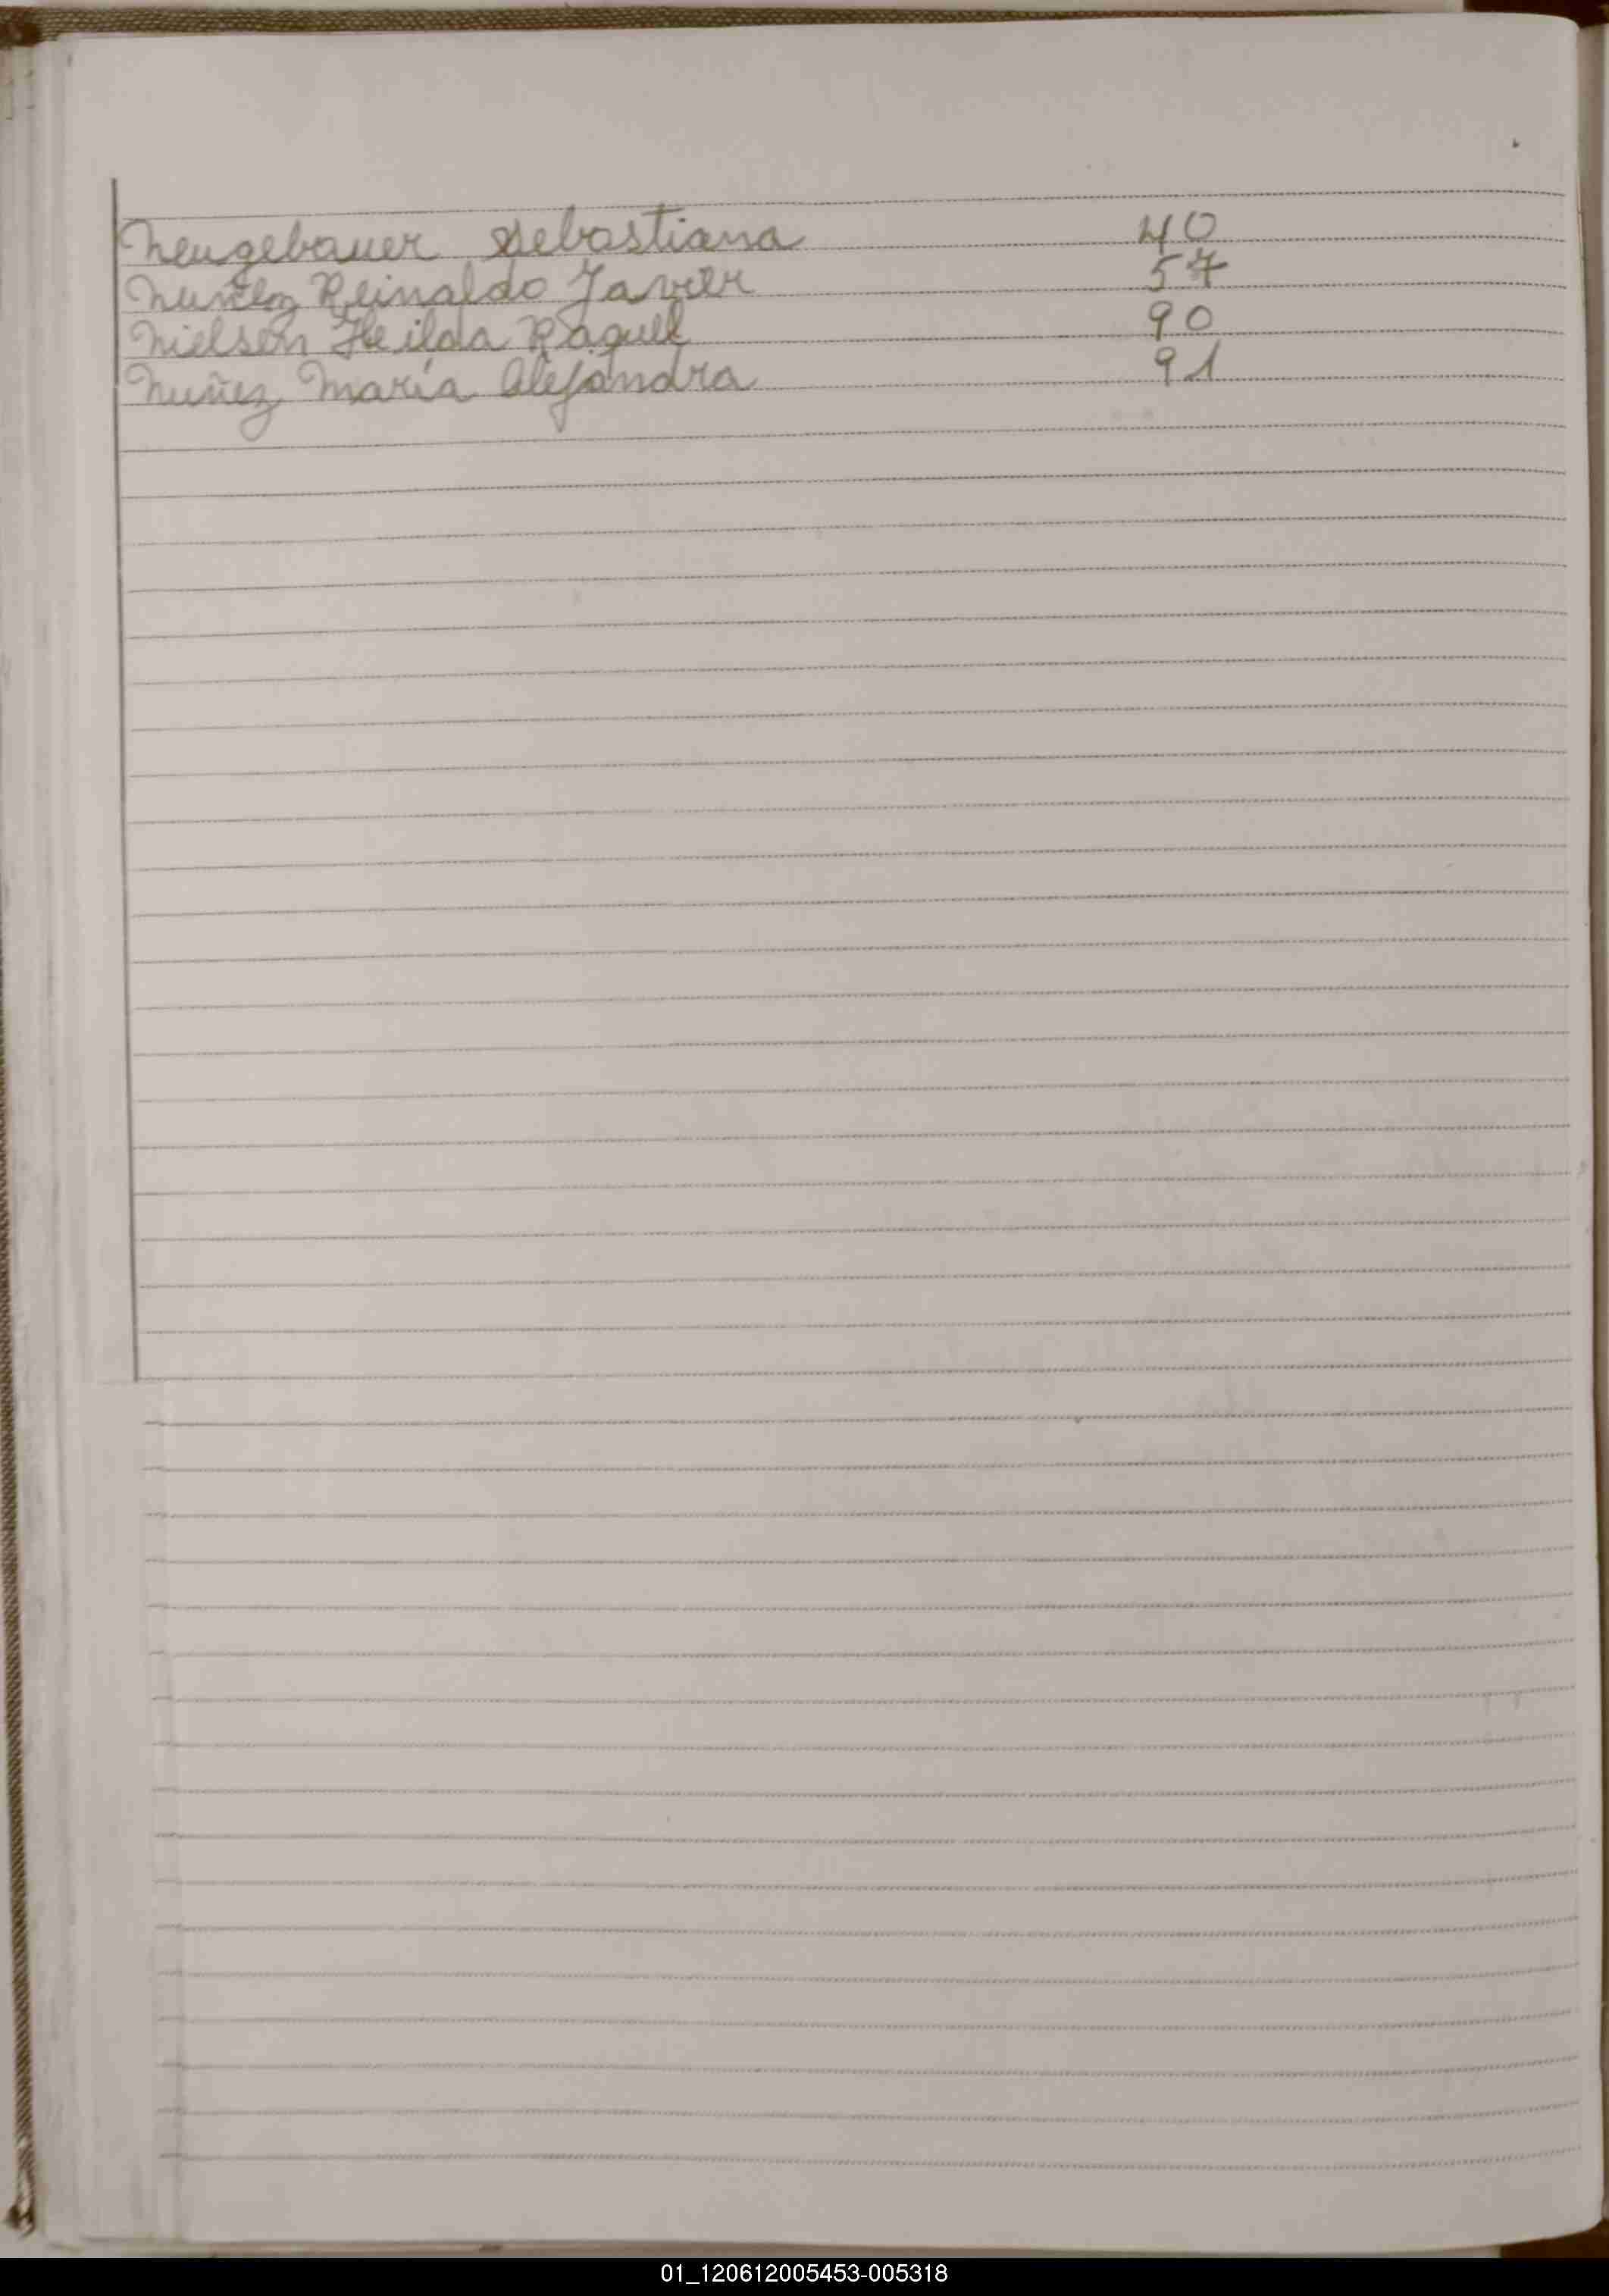 Neugebauer Sebastiana 40
Nuñez Reinaldo Javier 57
Nielsen Heilda Raquel 90
Nuñez María Alejandra 91
01_120612005453-005318